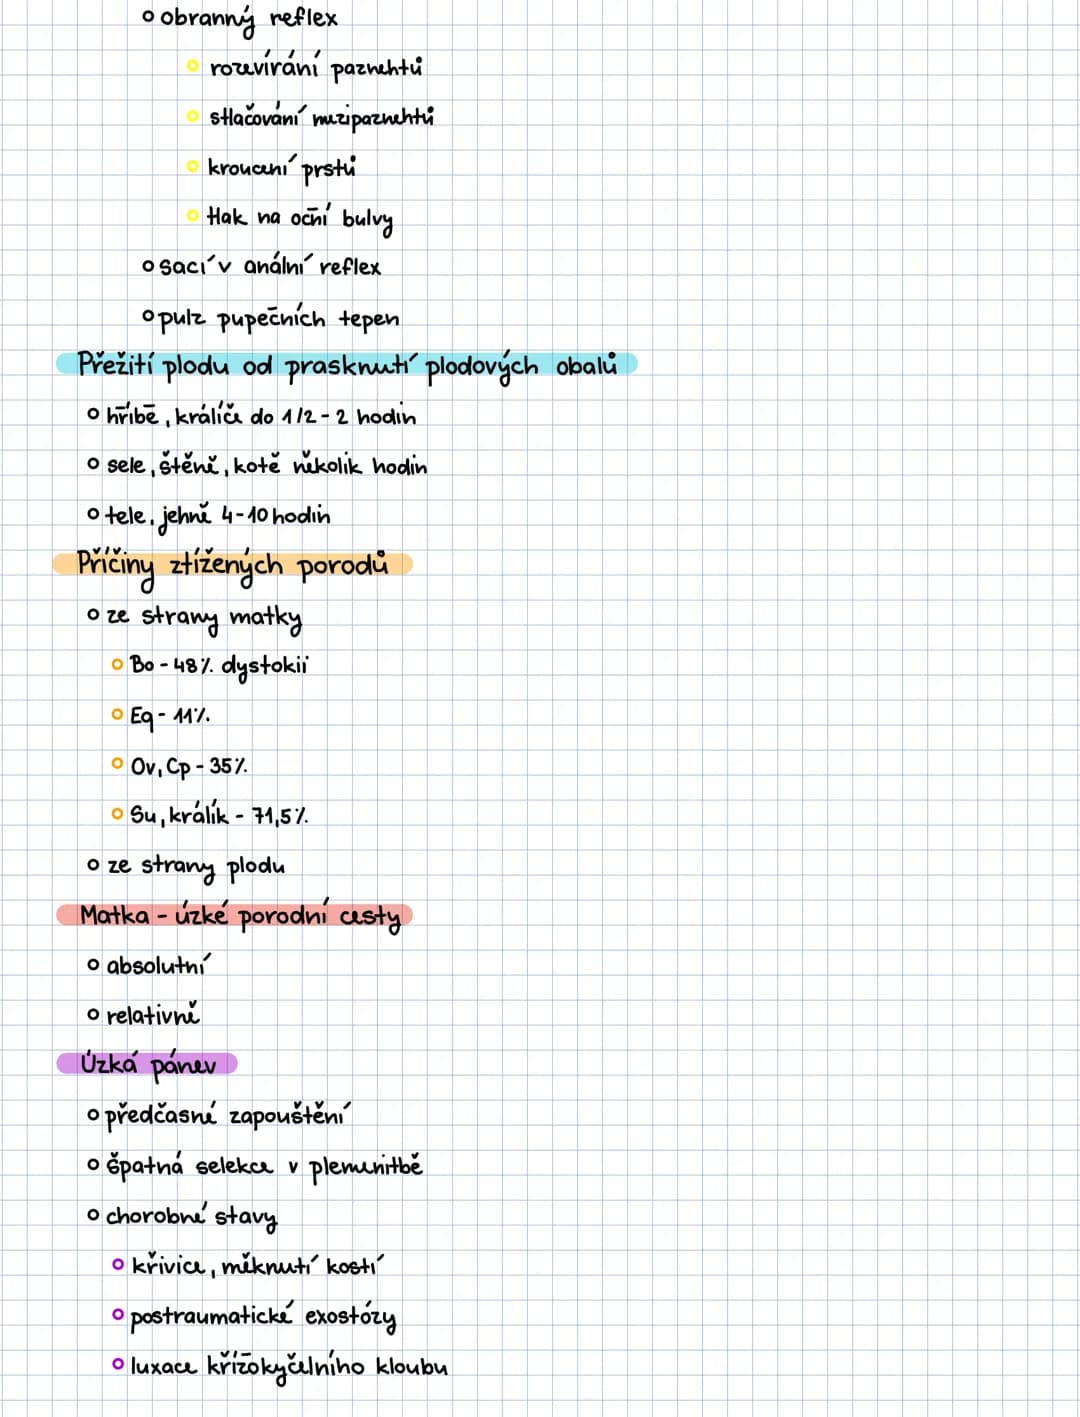 obranný reflex
rozevírání paznehtů
stlačování mezipaznehtů
kroucení prstů
tlak na oční bulvy
sací v anální reflex
pulz pupečních tepen
Přežití plodu od prasknutí plodových obalů
hříbě, králíče do 1/2 - 2 hodin
sele, štěně, kotě několik hodin
tele, jehně 4-10 hodin
Příčiny ztížených porodů
ze strany matky
Bo - 48% dystokií
Eq - 11%
Ov, Cp - 35%
Su, králík - 71,5%
ze strany plodu
Matka - úzké porodní cesty
absolutní
relativně
Úzká pánev
předčasné zapouštění
špatná selekce v plemenitbě
chorobné stavy
křivice, měknutí kostí
postraumatické exostózy
luxace křížokyčelního kloubu